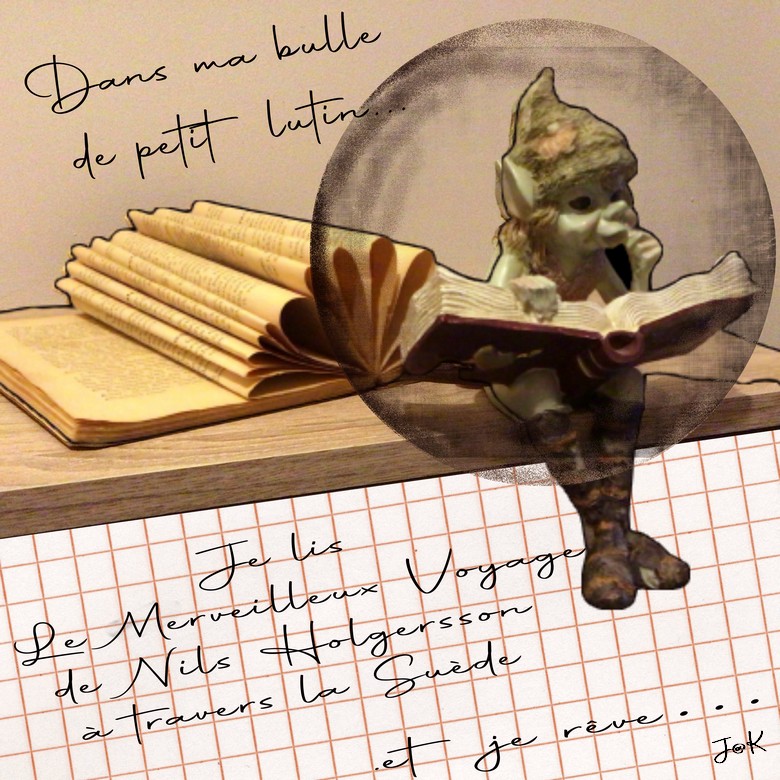 Dans ma bulle
de petit lutin...
Je lis
Le Merveilleux Voyage
de Nils Holgersson
à travers la Suède
.et je rêve . . .
JoK